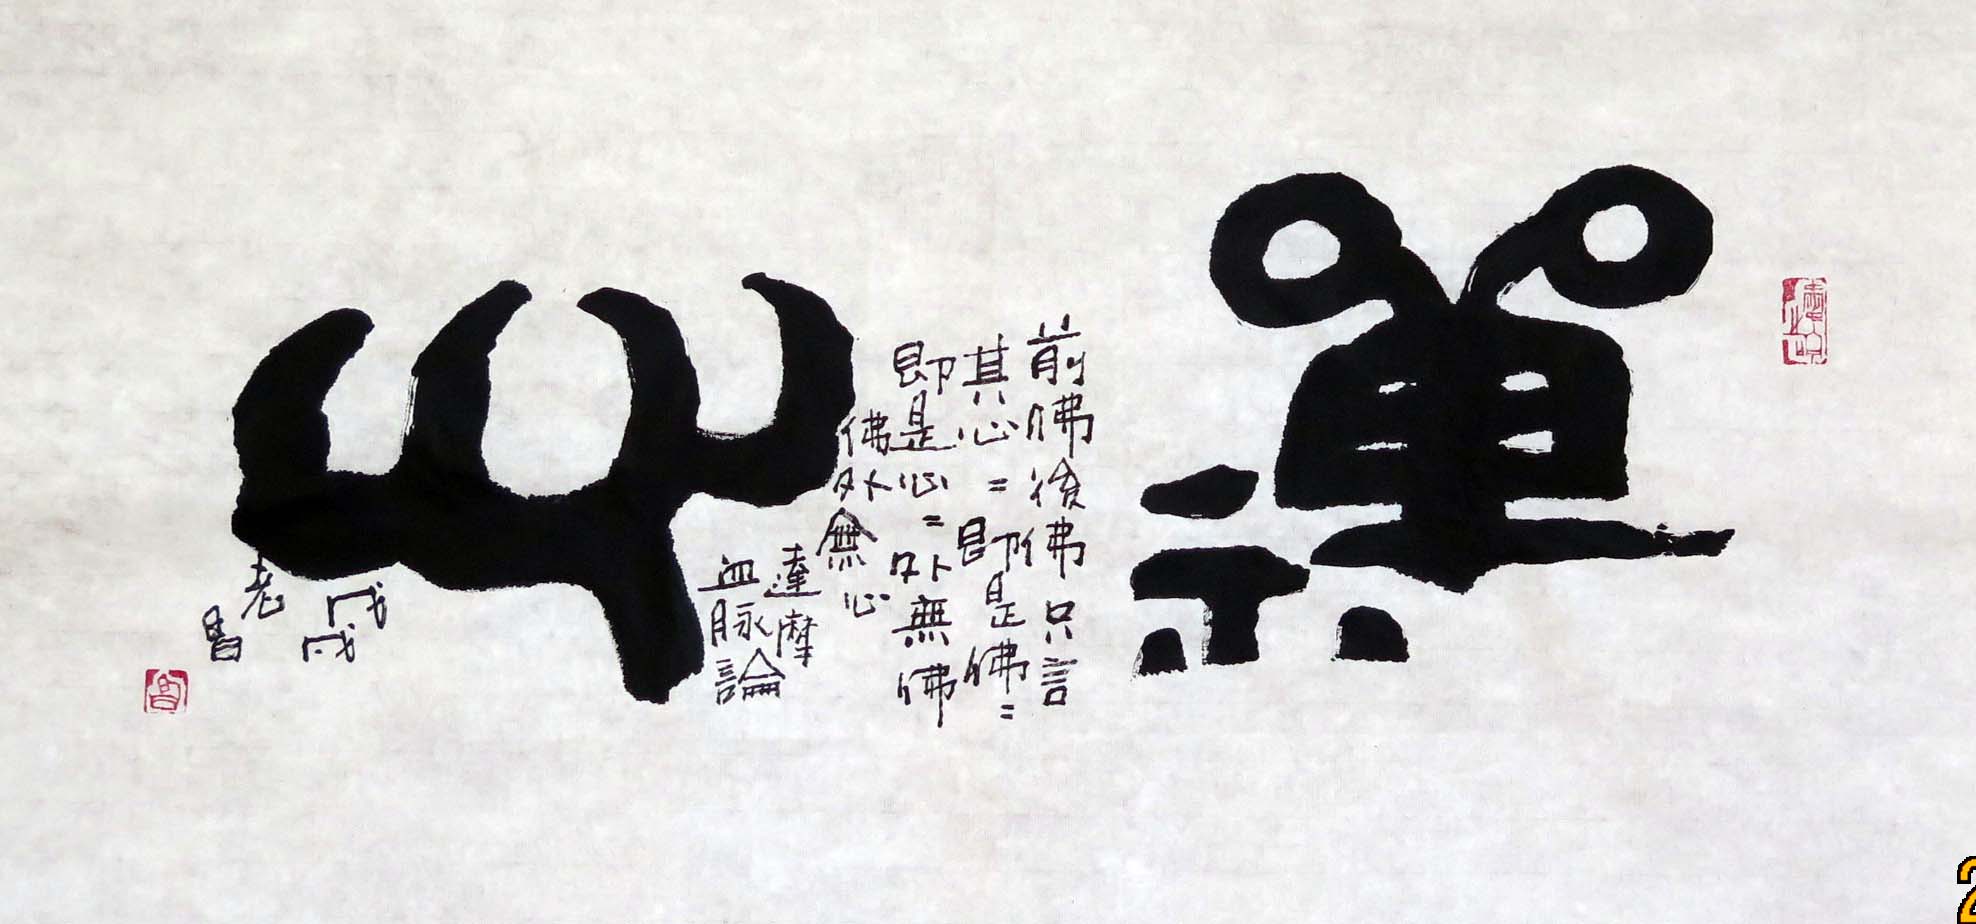 禪心
前佛後佛只言
其心＝即是佛＝
即是心＝外無佛
佛外無心
達摩
血脉論
戊戌
老冒